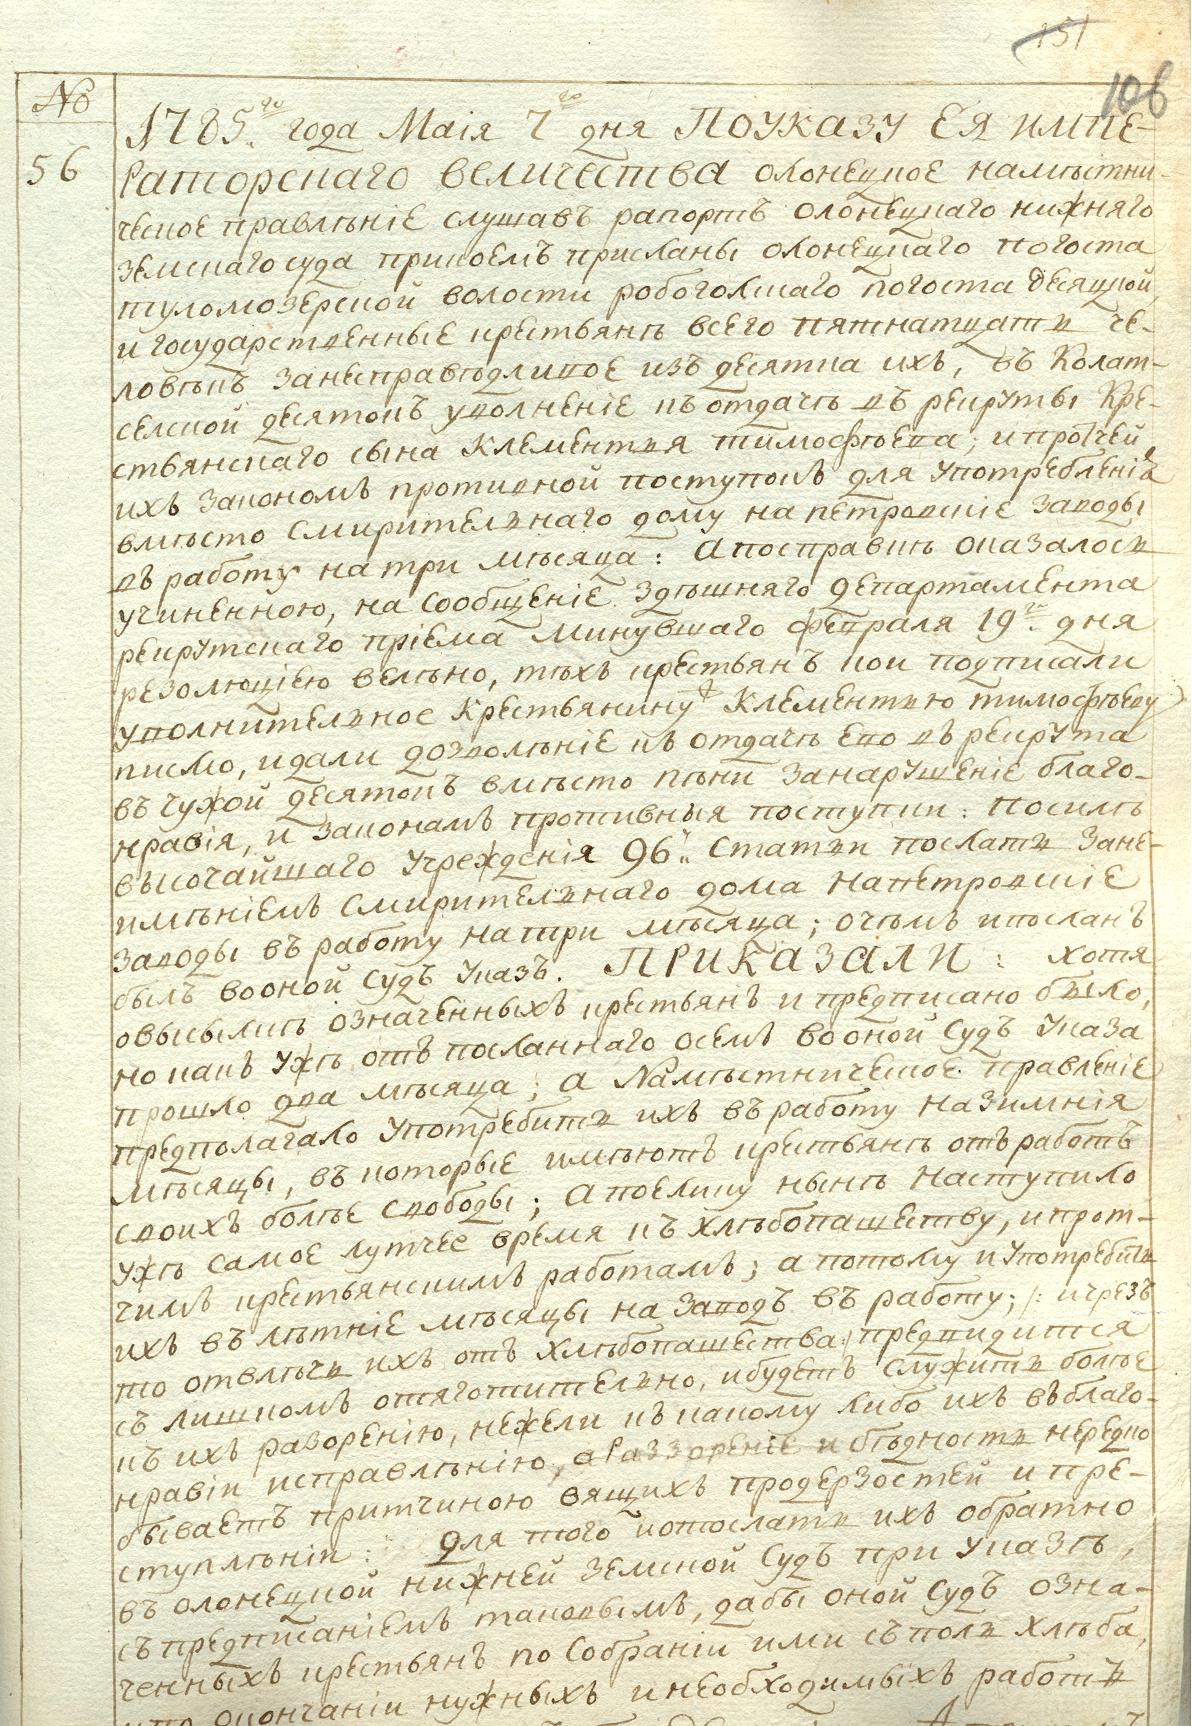 151
106
№
56
1785го года Маія 7го дня ПО УКАЗУ ЕЯ ИМПЕ-
РАТОРСКАГО ВЕЛИЧЕСТВА олонецкое намѣстни-
ческое правлѣніе слушавъ рапортъ олонецкаго нижняго
земскаго суда при коемъ присланы олонецкаго погоста
туломозерской волости робогожскаго погоста десяцкой,
и государственные крестьянѣ всего пятнатцать че-
ловѣкъ за несправѣдливое изъ десятка ихъ, въ Колат-
селской десятокъ уволненіе къ отдачѣ въ рекруты Кре-
стьянскаго сына Клементья тимофѣева; и протчей
ихъ законамъ противной поступокъ для употребленія
вмѣсто смирительнаго дому на петровскіе заводы
въ работу на три мѣсяца: А по справкѣ оказалось
учиненною, на сообщеніе здѣшняго департамента
рекрутскаго пріема минувшаго февраля 19го дня
резолюціею велѣно, тѣхъ крестьянъ кои подписали
уволнительное Крестьянину Клементью тимофѣеву
писмо, и дали дозволѣніе къ отдачѣ ево въ рекрута
въ чужой десятокъ вмѣсто пѣни за нарушеніе благо-
нравія, и законамъ противныя поступки: по силѣ
высочайшаго учрежденія 96й статьи послать за не-
имѣніемъ смирительнаго дома на петровскіе
заводы въ работу на три мѣсяца; о чѣмъ и посланъ
былъ во оной судъ указъ. ПРИКАЗАЛИ: хотя
о высылкѣ означенныхъ крестьянъ и предписано было,
но какъ ужѣ отъ посланнаго о семъ во оной судъ указа
прошло два мѣсяца; а Намѣстническое правленіе
предполагало употребить ихъ въ работу на зимнія
мѣсяцы, въ которые имѣютъ крестьянѣ отъ работъ
своихъ болѣе свободы; а поелику нынѣ наступило
ужѣ самое лутчее время къ хлѣбопашеству, и прот-
чимъ крестьянскимъ работамъ; а потому и употребить
ихъ въ лѣтніе мѣсяцы на заводъ въ работу; /: и чрезъ
то отвлѣчь ихъ отъ хлѣбопашества :/ предвидится
съ лишкомъ отяготительно, и будетъ служить болѣе
къ ихъ разоренію, нежели къ какому либо ихъ въ благо-
нравіи исправлѣнію, а раззореніе и бѣдность нередко
бываетъ притчиною вящихъ продерзостей и пре-
ступлѣніи: Для того и отослать ихъ обратно
въ олонецкой нижней земской судъ при указѣ,
съ предписаніемъ таковымъ, дабы оной судъ озна-
ченныхъ крестьянъ по собраніи ими съ поль хлѣба,
и по окончаніи нужныхъ и необходимыхъ работъ